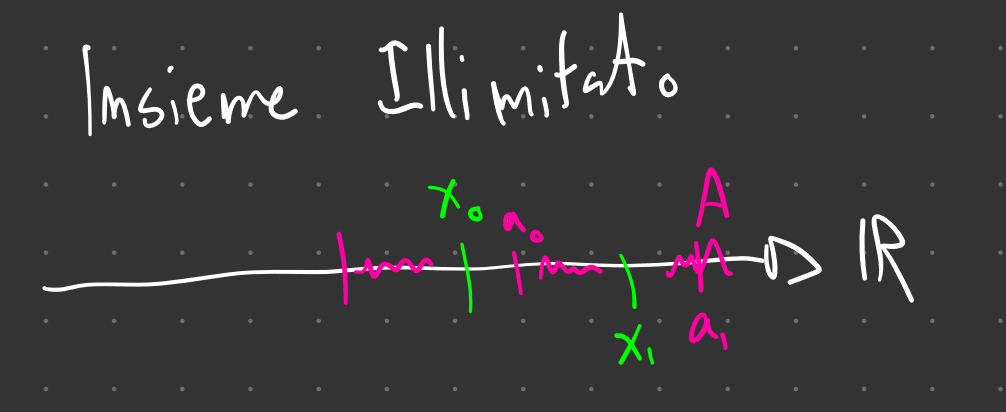 Insieme Illimitato
x₀ a₀ A
ℝ
x₁ a₁